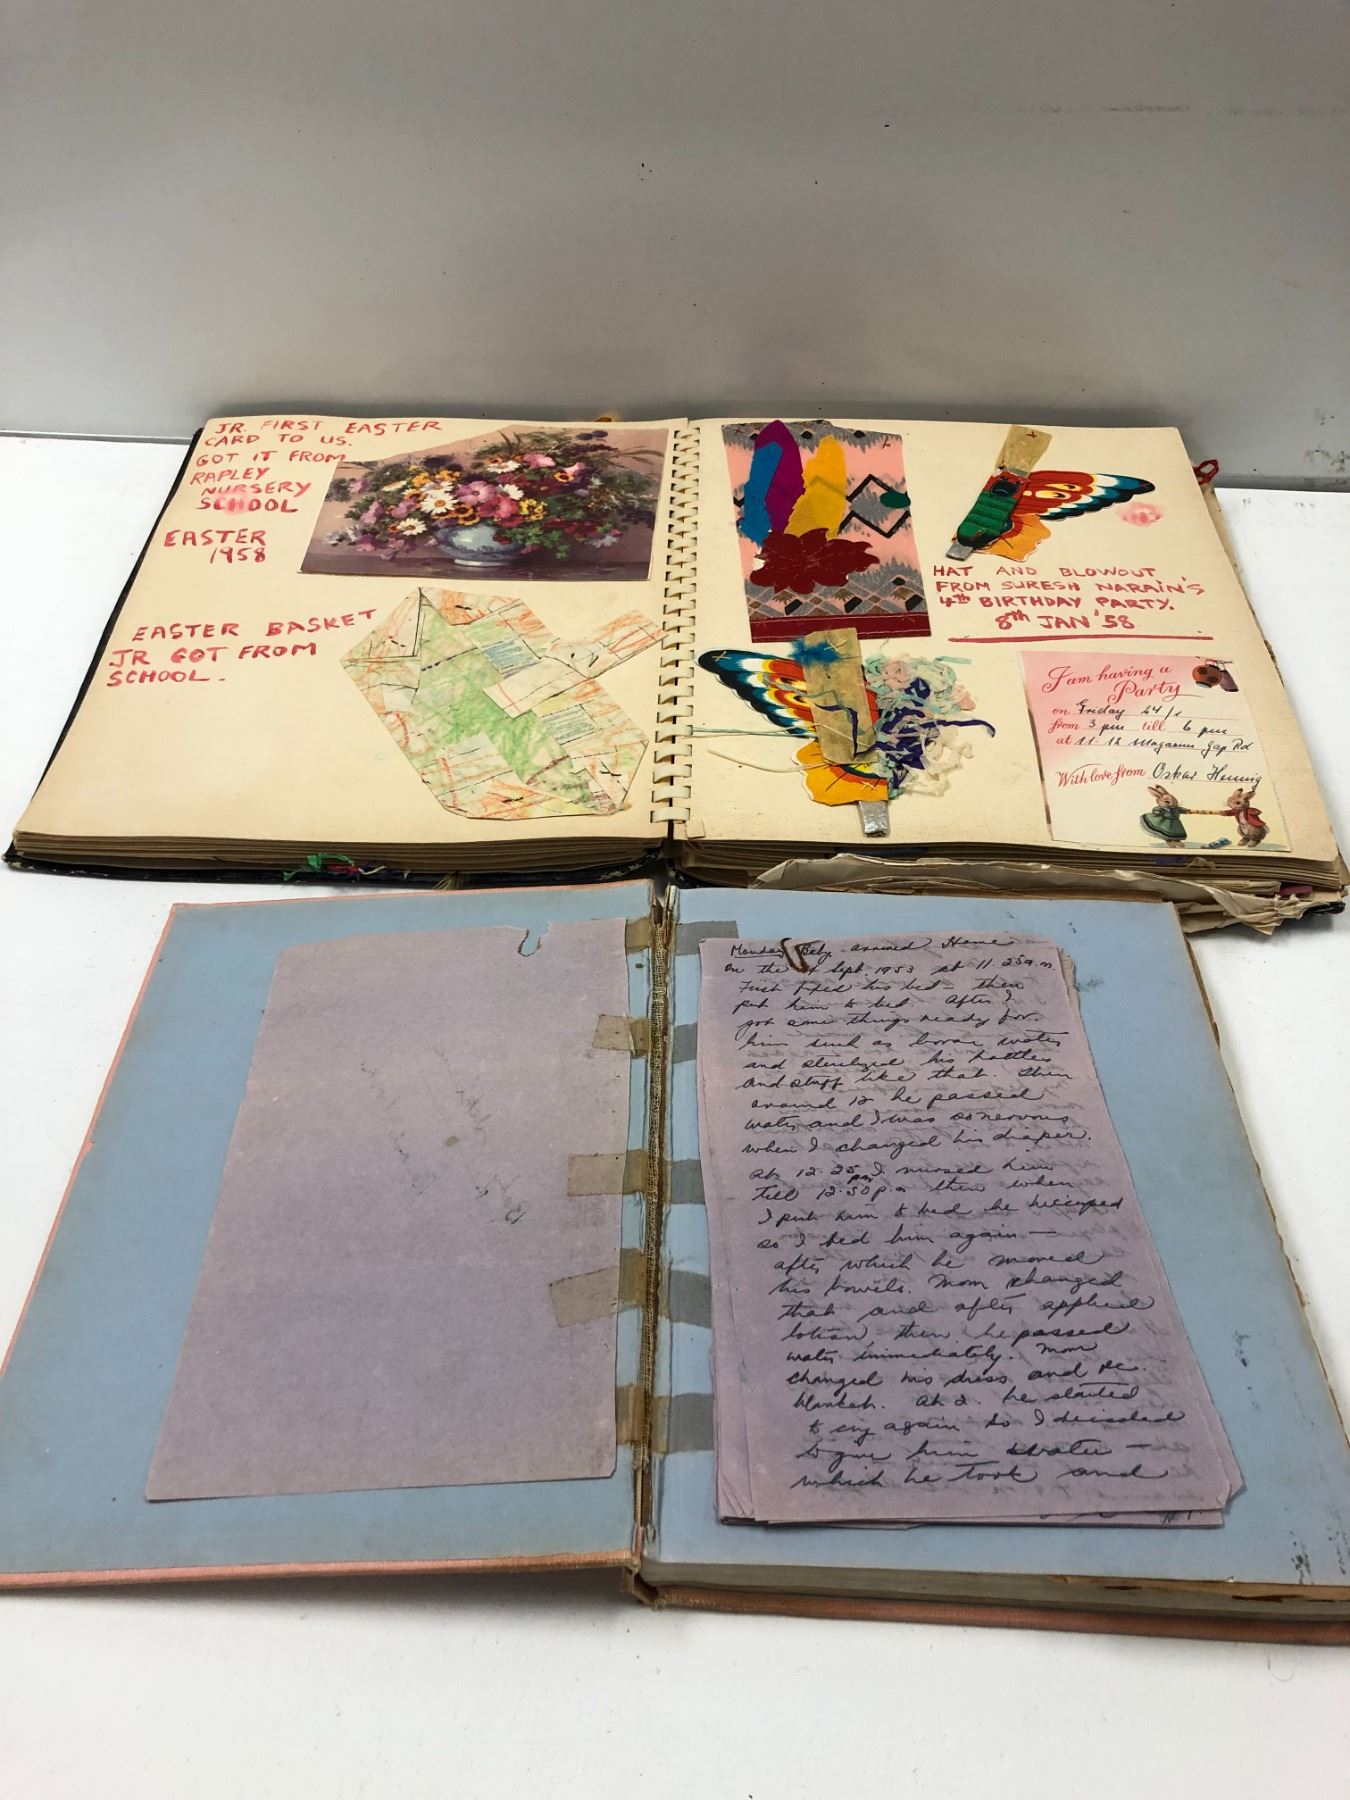 JR. FIRST EASTER
CARD TO US.
GOT IT FROM
RAPLEY
NURSERY
SCHOOL
EASTER
1958
EASTER BASKET
JR GOT FROM
SCHOOL.
HAT AND BLOWOUT
FROM SURESH NARAIN'S
4th BIRTHDAY PARTY.
8th JAN '58
I am having a
Party
on Friday 24/1
from 3 pm till 6 pm
at 11-12 Magazine Gap Rd
With love from Oskar Hennig
Monday Baby arrived Home
on the Sept. 1953 at 11.25 a.m.
First fixed his bed - then
put him to bed. After I
got some things ready for
him such as boran water
and sterilyzed his bottles
and stuff like that. Then
around 12 he passed
water and I was so nervous
when I changed his diaper.
At 12.25 pm I nursed him
till 12.50 p.m then when
I put him to bed he hiccuped
so I fed him again —
after which he moved
his bowels. Mom changed
that and after applied
lotion, then he passed
water immediately. Mom
changed his dress and
blanket. At 2. he started
to cry again so I decided
to give him water —
which he took and